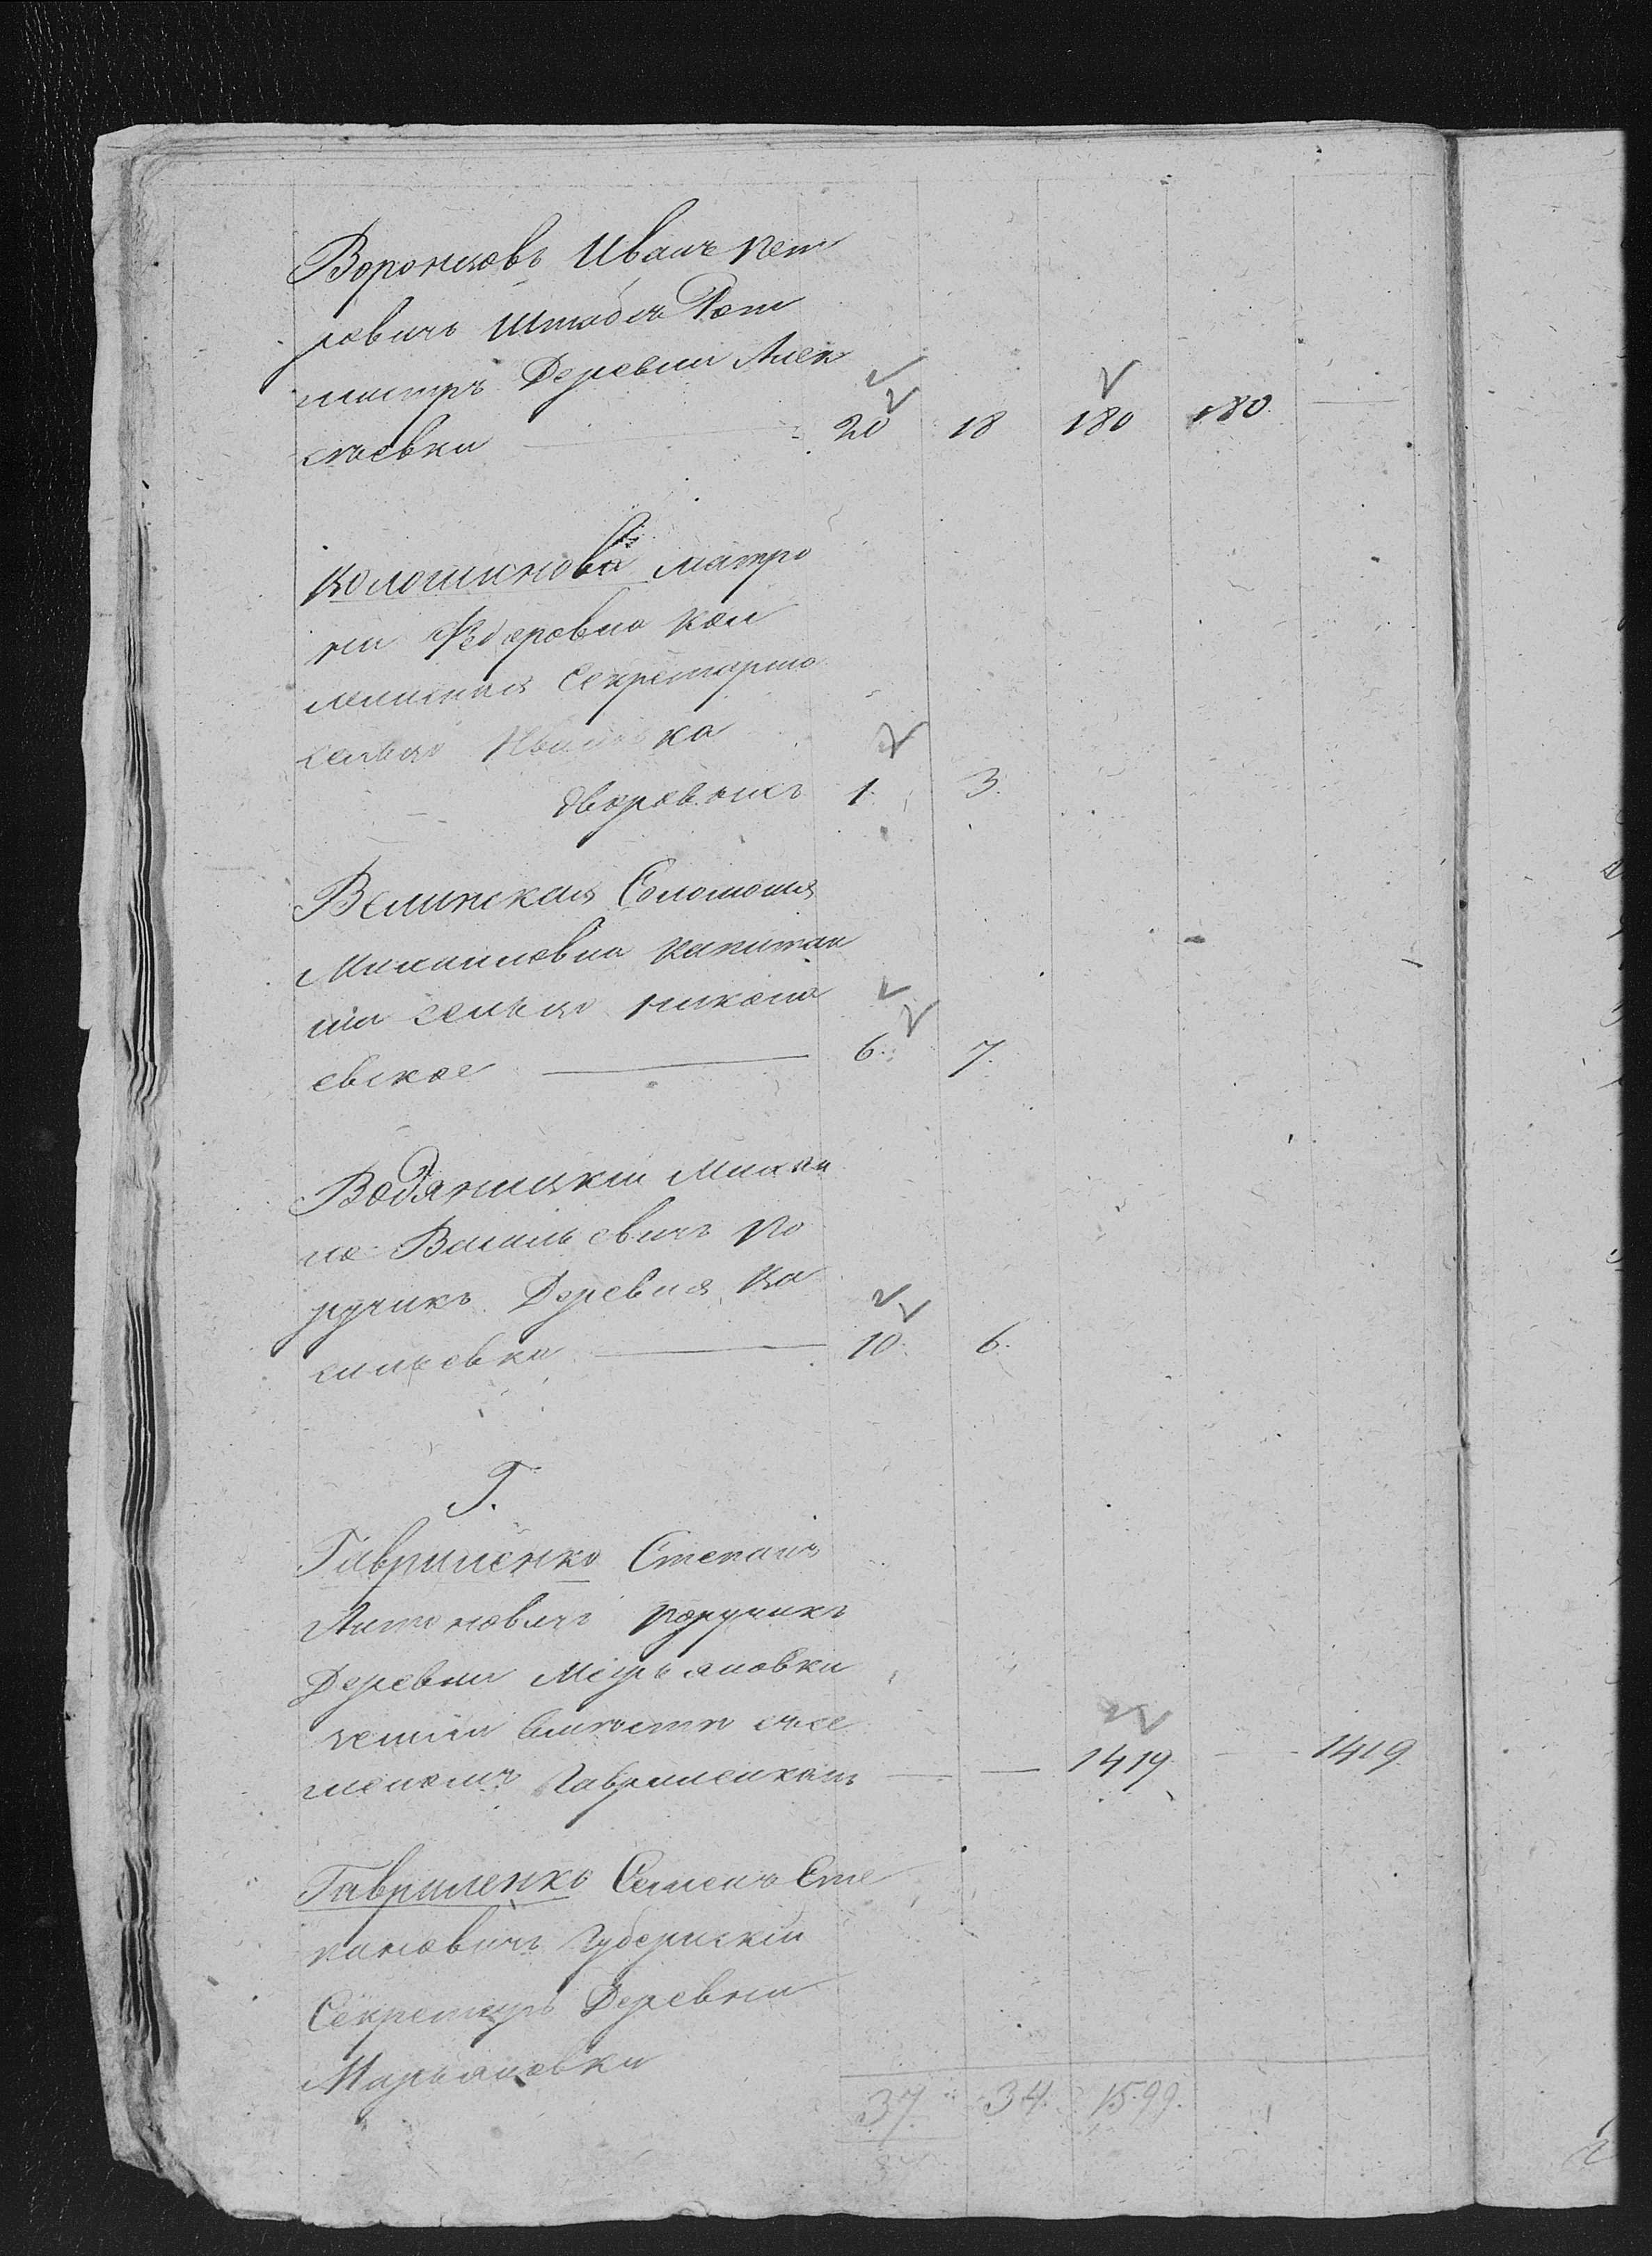 Воронцовъ Иванъ Пет
ровичъ Штабсъ Рот
мистръ Деревни Алек
сѣевки — 20 18 180 180 —
Волошинова Матро
на Федоровна Кол
лежская Секретарша
сельцо Ивановка
дворовыхъ 1. 3.
Велинская Соломония
Михайловна Капитан
ша сельцо Никола
евское — 6. 7.
Водяницкій Михай
ло Васильевичъ По
ручикъ Деревня Ва
сильевка — 10. 6.
Г.
Гавриленко Степанъ
Антоновичъ Поручикъ
Деревни Марьяновки
земли
Гавриленкомъ — — 1419 — 1419
Гавриленко Семенъ Сте
пановичъ Губернскій
Секретарь Деревни
Марьяновки
37. 34. 1599.